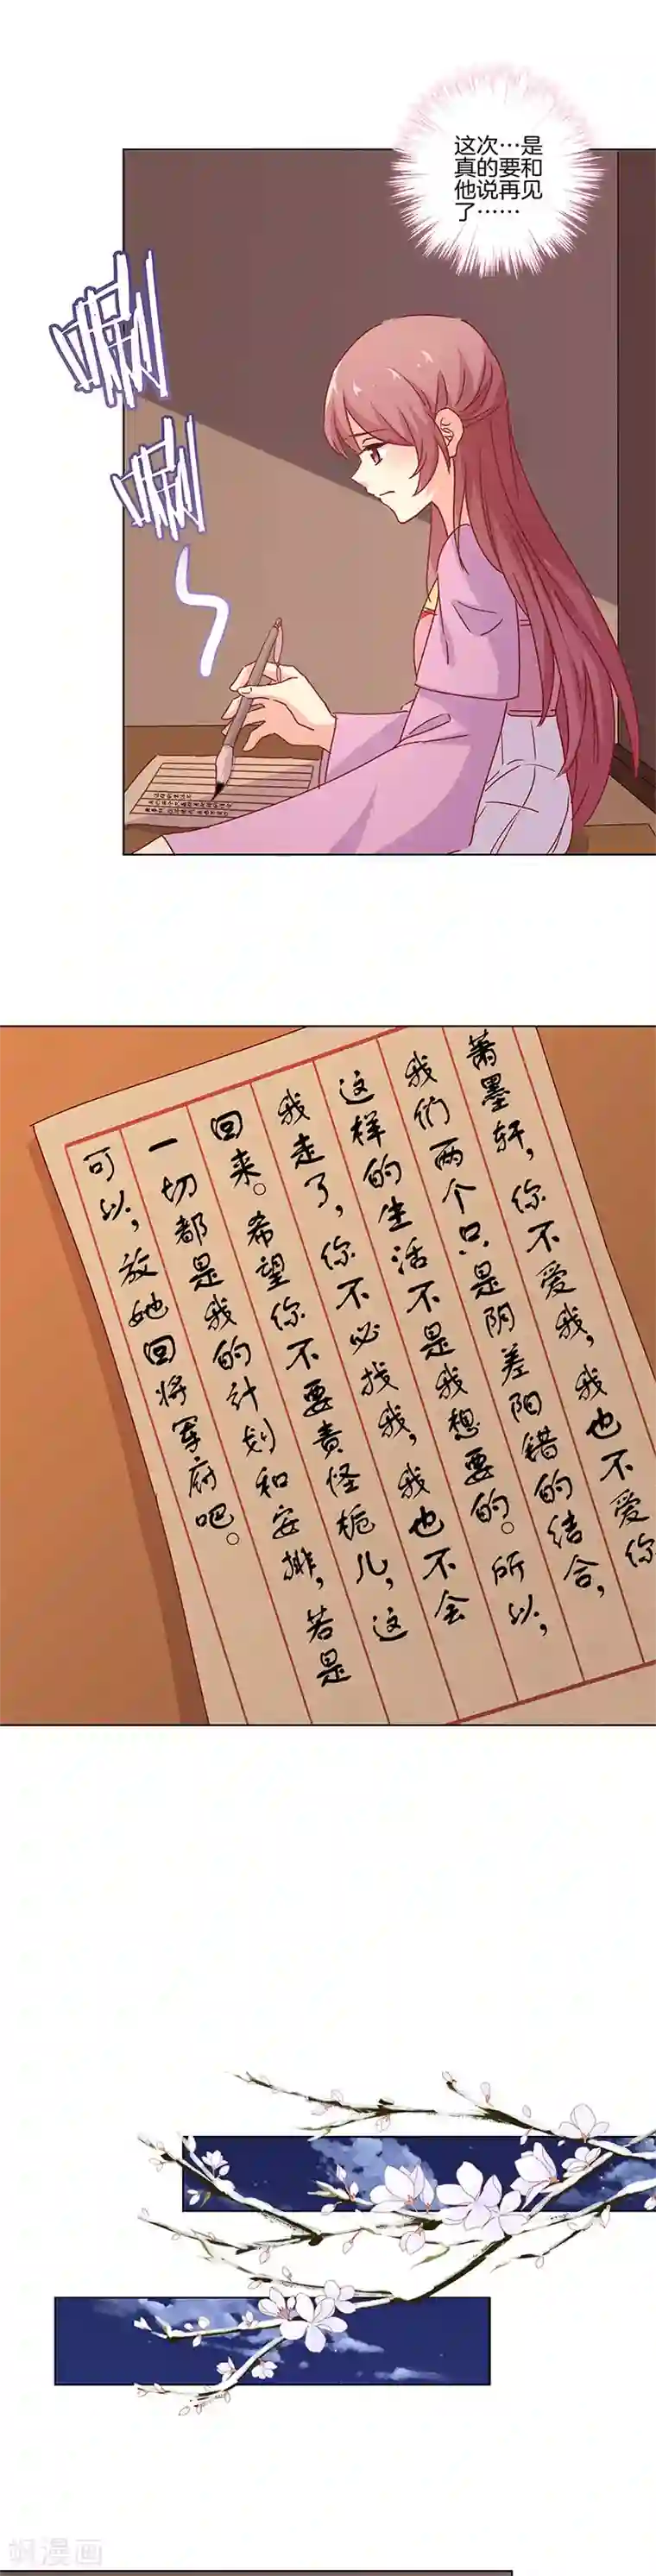 这次…是
真的要和
他说再见
了……
唰
唰
萧墨轩，你不爱我，我也不爱你
我们两个只是阴差阳错的结合，
这样的生活不是我想要的。所以，
我走了，你不必找我，我也不会
回来。希望你不要责怪栀儿，这
一切都是我的计划和安排，若是
可以，放她回将军府吧。
飒漫画